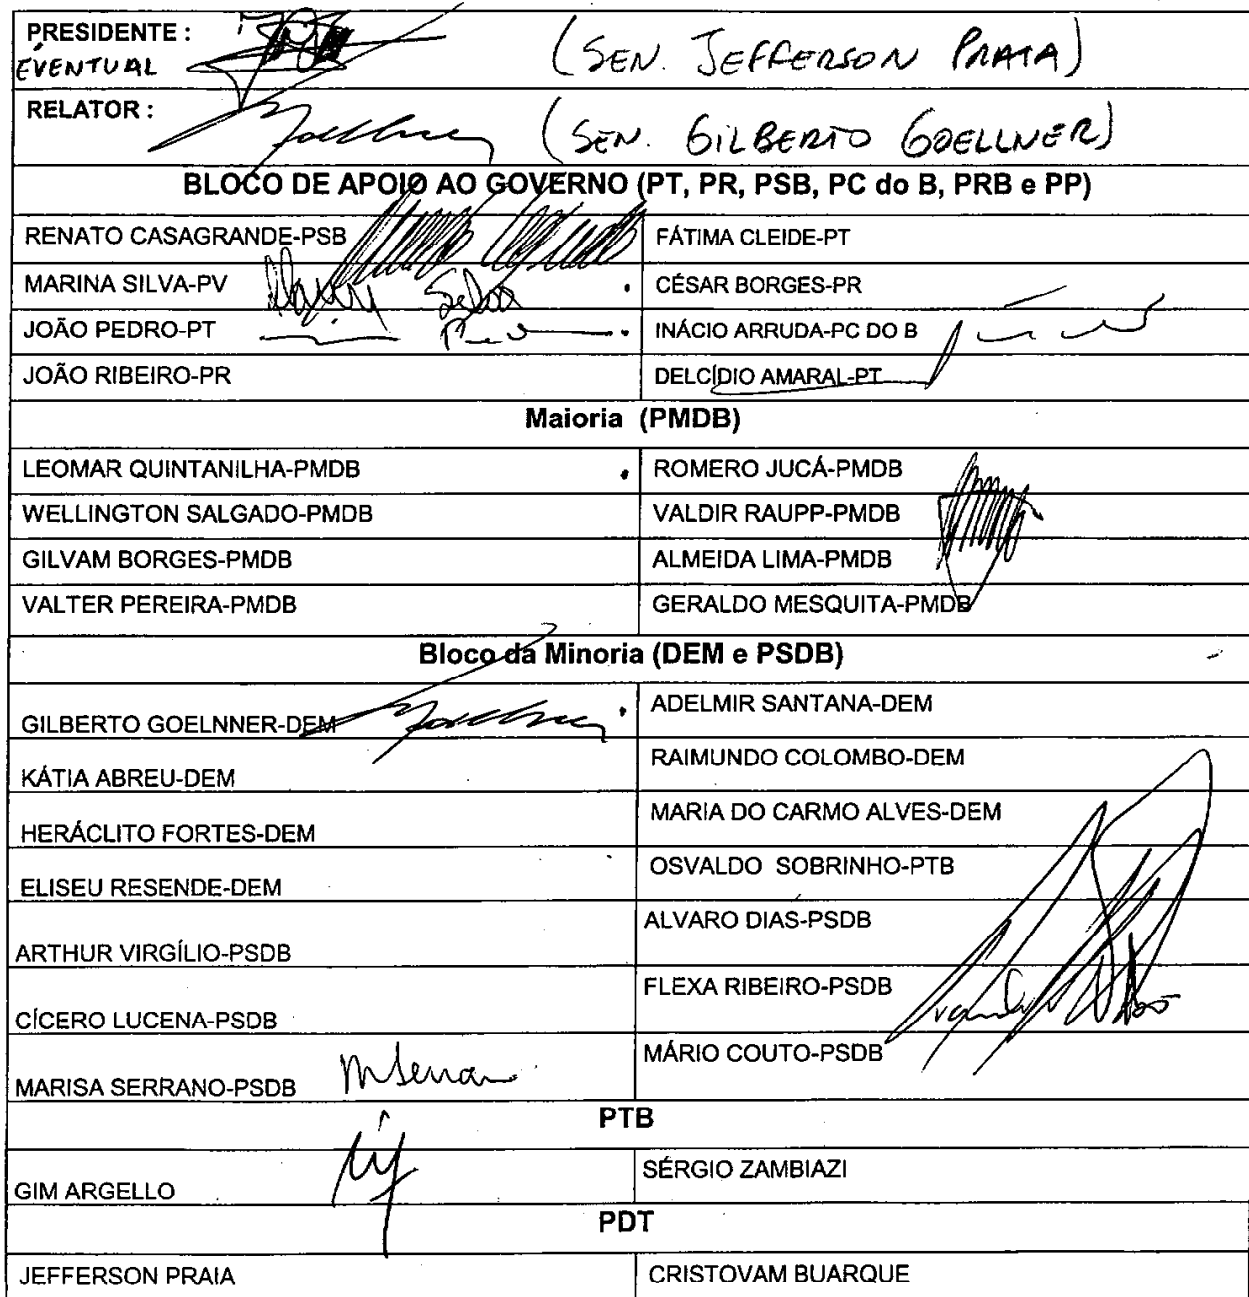 PRESIDENTE :
EVENTUAL
(SEN. JEFFERSON PRAIA)
RELATOR :
(SEN. GILBERTO GOELLNER)
BLOCO DE APOIO AO GOVERNO (PT, PR, PSB, PC do B, PRB e PP)
RENATO CASAGRANDE-PSB
FÁTIMA CLEIDE-PT
MARINA SILVA-PV Marina Silva
CÉSAR BORGES-PR
JOÃO PEDRO-PT
INÁCIO ARRUDA-PC DO B
JOÃO RIBEIRO-PR
DELCÍDIO AMARAL-PT
Maioria (PMDB)
LEOMAR QUINTANILHA-PMDB
ROMERO JUCÁ-PMDB
WELLINGTON SALGADO-PMDB
VALDIR RAUPP-PMDB
GILVAM BORGES-PMDB
ALMEIDA LIMA-PMDB
VALTER PEREIRA-PMDB
GERALDO MESQUITA-PMDB
Bloco da Minoria (DEM e PSDB)
GILBERTO GOELNNER-DEM
ADELMIR SANTANA-DEM
KÁTIA ABREU-DEM
RAIMUNDO COLOMBO-DEM
HERÁCLITO FORTES-DEM
MARIA DO CARMO ALVES-DEM
ELISEU RESENDE-DEM
OSVALDO SOBRINHO-PTB
ARTHUR VIRGÍLIO-PSDB
ALVARO DIAS-PSDB
CÍCERO LUCENA-PSDB
FLEXA RIBEIRO-PSDB
MARISA SERRANO-PSDB
MÁRIO COUTO-PSDB
PTB
GIM ARGELLO
SÉRGIO ZAMBIAZI
PDT
JEFFERSON PRAIA
CRISTOVAM BUARQUE